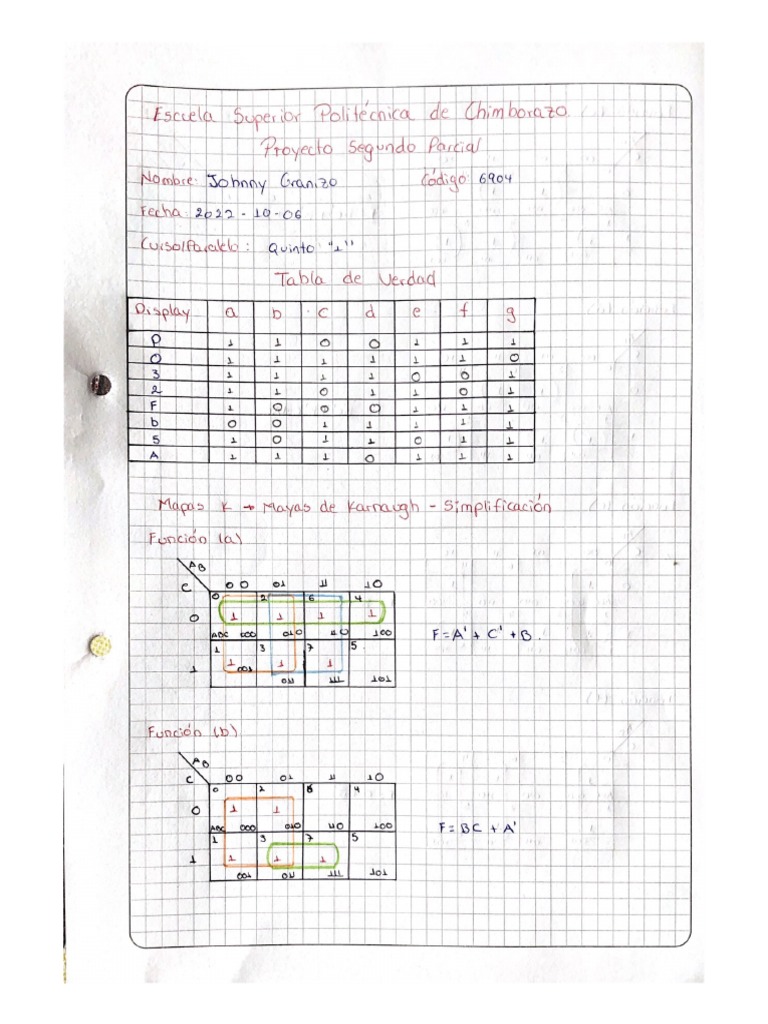 Escuela Superior Politécnica de Chimborazo.
Proyecto Segundo Parcial
Nombre: Johnny Granizo Código: 6904
Fecha: 2022-10-06
Curso/Paralelo: Quinto "1"
Tabla de Verdad
Display a b c d e f g
P 1 1 0 0 1 1 1
0 1 1 1 1 1 1 0
3 1 1 1 1 0 0 1
2 1 1 0 1 1 0 1
F 1 0 0 0 1 1 1
b 0 0 1 1 1 1 1
5 1 0 1 1 0 1 1
A 1 1 1 0 1 1 1
Mapas K → Mayas de Karnaugh - Simplificación
Función (a)
AB
C 00 01 11 10
0 2 6 4
0 1 1 1 1
ABC 000 010 110 100
F = A' + C' + B.
1 3 7 5
1 1 1 1
001 011 111 101
Función (b)
AB
C 00 01 11 10
0 2 6 4
0 1 1
ABC 000 010 110 100
F = BC + A'
1 3 7 5
1 1 1 1
001 011 111 101